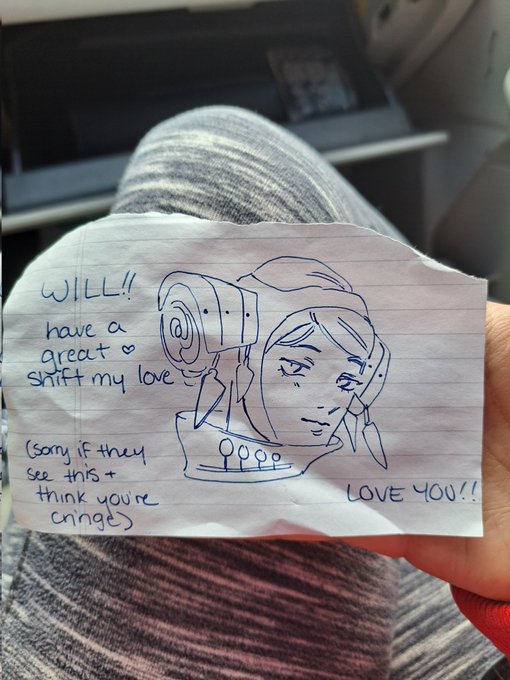 WILL!!
have a
great ♡
shift my love
(sorry if they
see this +
think you're
cringe)
LOVE YOU!!